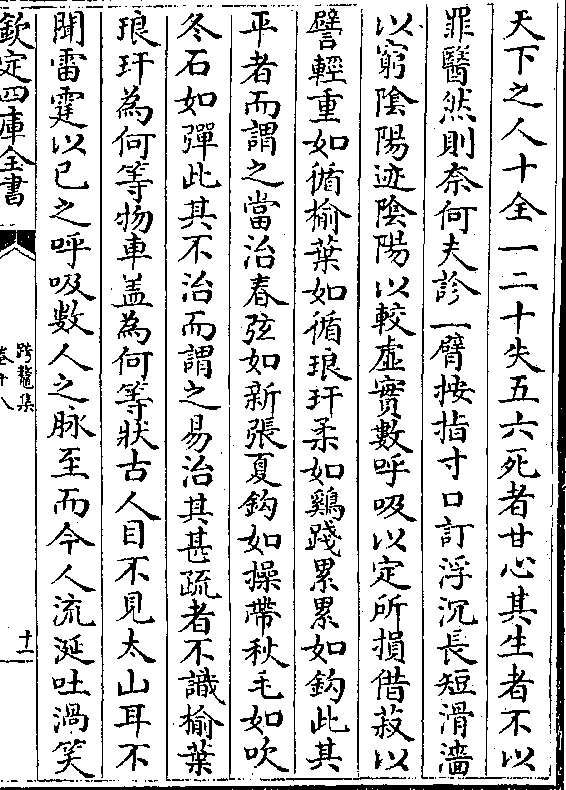 天下之人十全一二十失五六死者甘心其生者不以
罪醫然則奈何夫診一臂按指寸口訂浮沉長短滑濇
以窮陰陽迹陰陽以較虛實數呼吸以定所損借菽以
譬輕重如循榆葉如循琅玕柔如鷄踐累累如鈎此其
平者而謂之當治春弦如新張夏鈎如操帶秋毛如吹
冬石如彈此其不治而謂之易治其甚疏者不識榆葉
琅玕為何等物車盖為何等狀古人目不見太山耳不
聞雷霆以已之呼吸數人之脉至而今人流涎吐渦笑
欽定四庫全書
跨鼇集
卷十八
十一